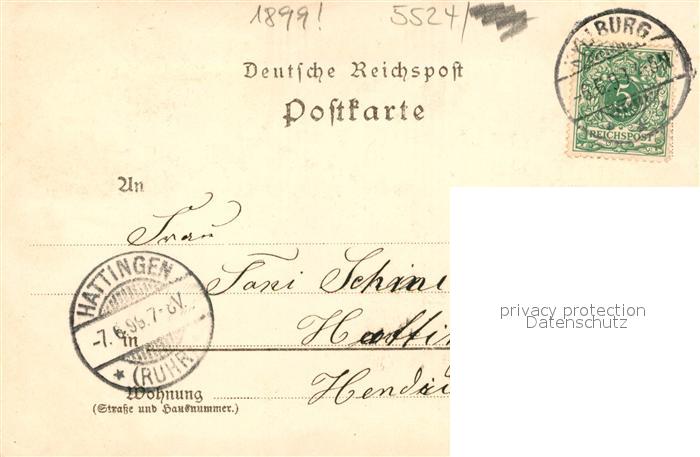 1899! 5524/
Deutsche Reichspost
Postkarte
KYLLBURG
5
REICHSPOST
An
Frau
Toni Schim
HATTINGEN
-7.6.99.7-8V.
* (RUHR
in Hattin
Wohnung
(Straße und Hausnummer.)
privacy protection
Datenschutz